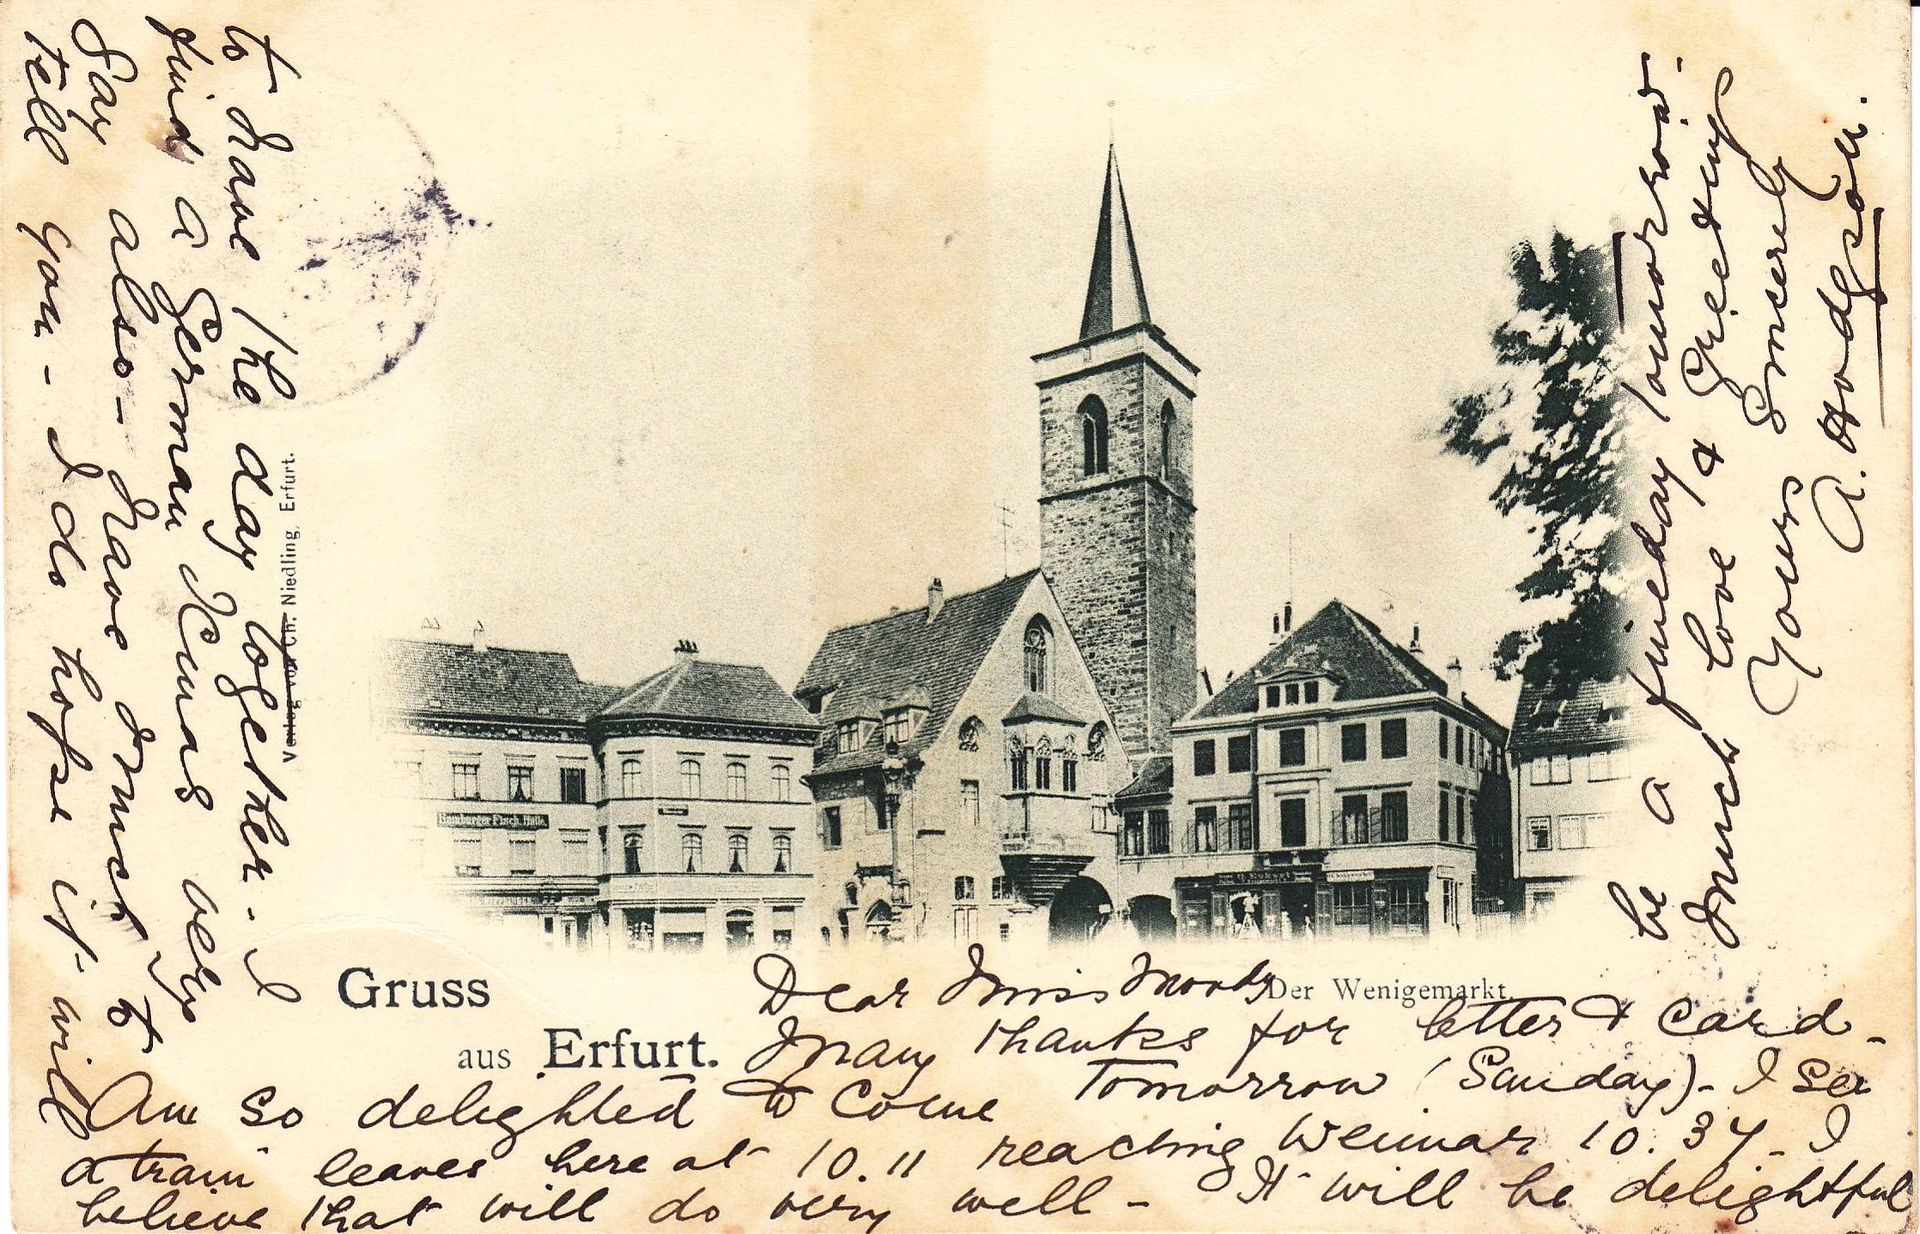 Hamburger Fisch. Halle.
Gruss
aus Erfurt.
Der Wenigemarkt.
Verlag von Ch. Niedling, Erfurt.
Dear Miss Moody
Many thanks for letter & card -
Am so delighted to come Tomorrow (Sunday) - I see
a train leaves here at 10.11 reaching Weimar 10.37 - I
believe that will do very well - It will be delightful
to have the day together. I
find a German Xmas very
Gay also - have much to
tell you - I do hope it will
be a fineday tomorrow.
Much love & Greetings
Yours Sincerely
A. Hodgson.